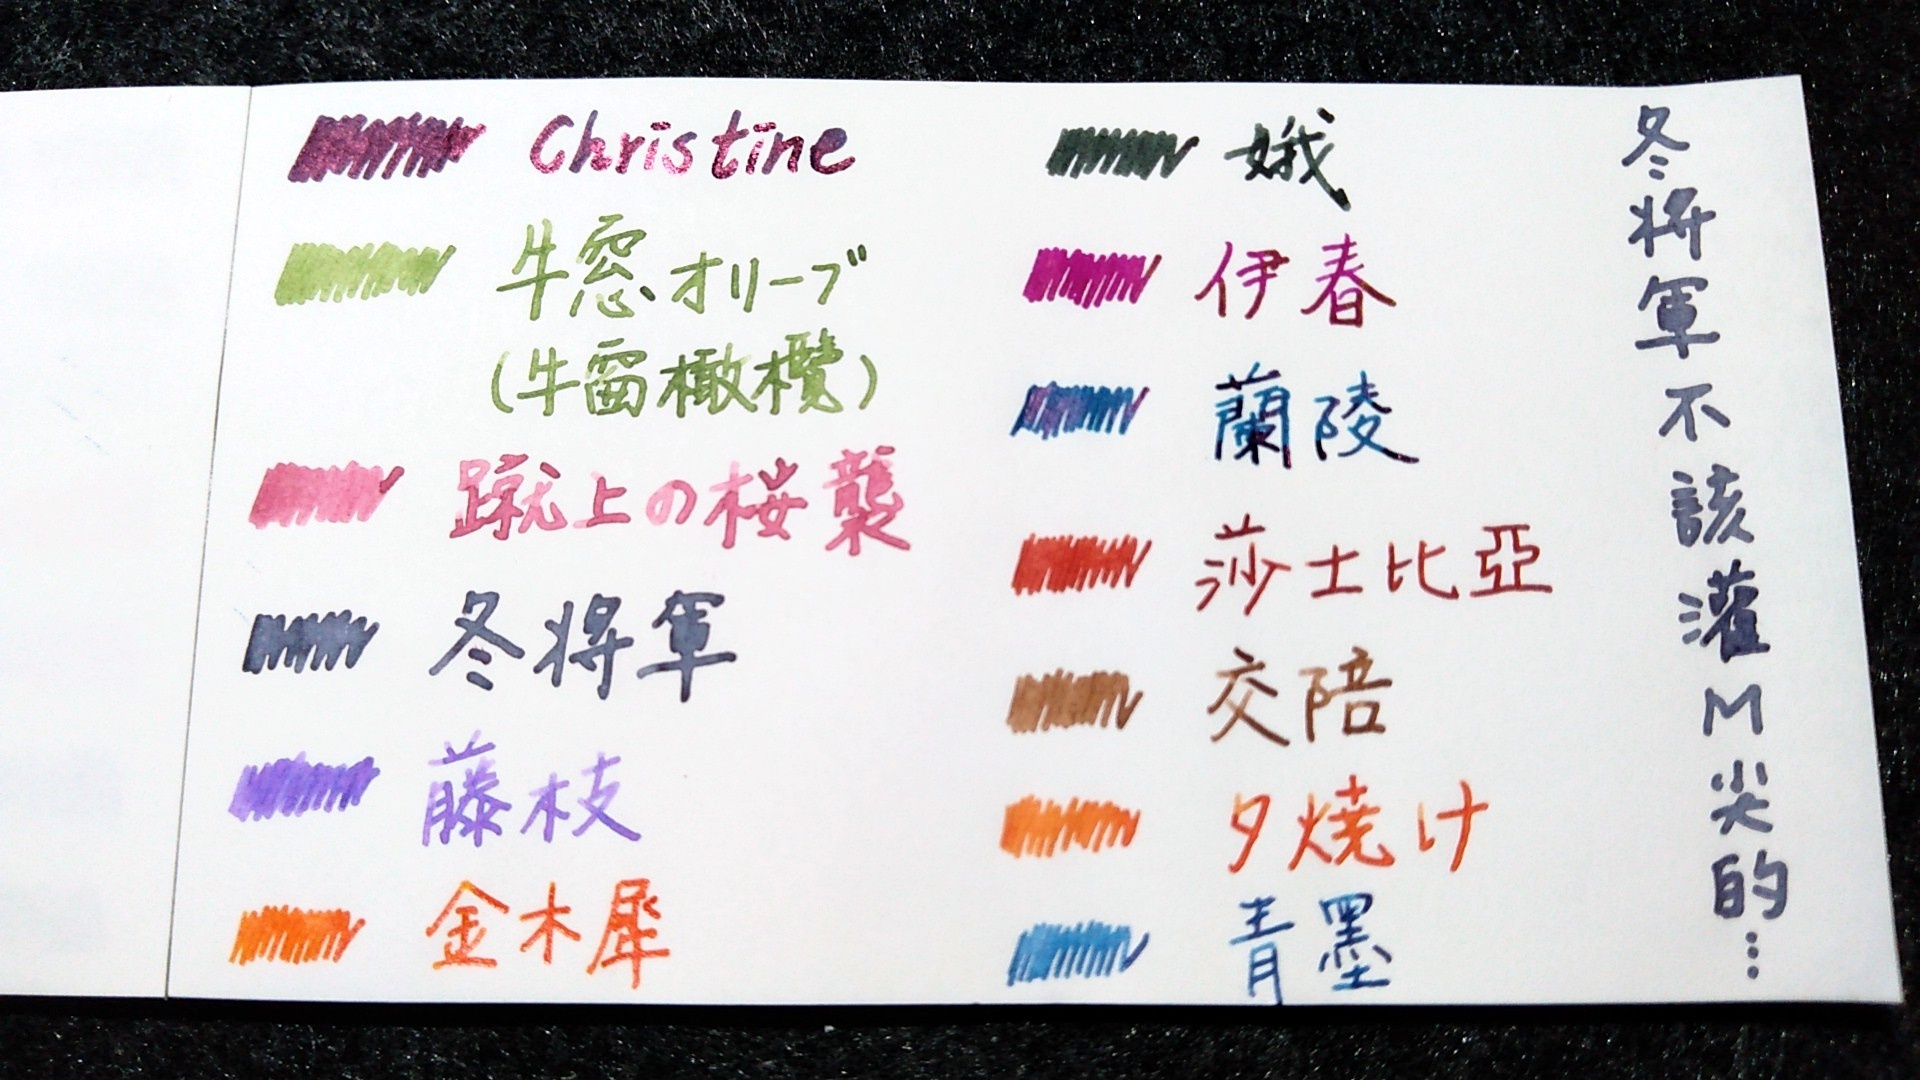 Christine
牛窓オリーブ
(牛窗橄欖)
蹴上の桜襲
冬将軍
藤枝
金木犀
娥
伊春
蘭陵
莎士比亞
交陪
夕焼け
青墨
冬将軍不該灌M尖的…